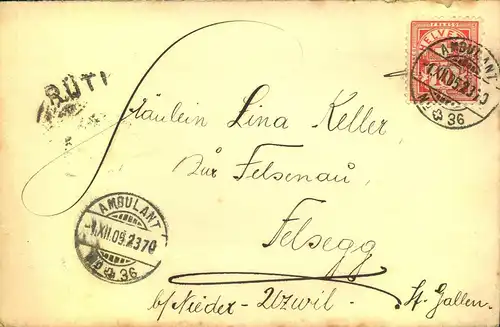 FRANCO
HELVETIA
AMBULANT
1.XII.09.2370
No 36
RÜTI
Fräulein Lina Keller,
Zur Felsenau,
Felsegg
b/Nieder-Uzwil. St. Gallen.
AMBULANT
1.XII.09.2370
No 36